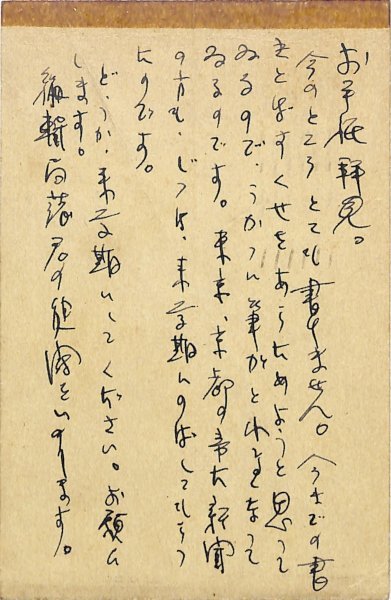 お手紙拝見。
今のところとても書けません。今までの書
きとばすくせをあらためようと思つて
ゐるので、うかつに筆がとれなくなつて
ゐるのです。東京、京都の帝大新聞
の方も、じつは、来学期にのばしてもらつ
たのです。
どうか、来学期にしてください。お願ひ
します。
編輯諸君の健闘をいのります。